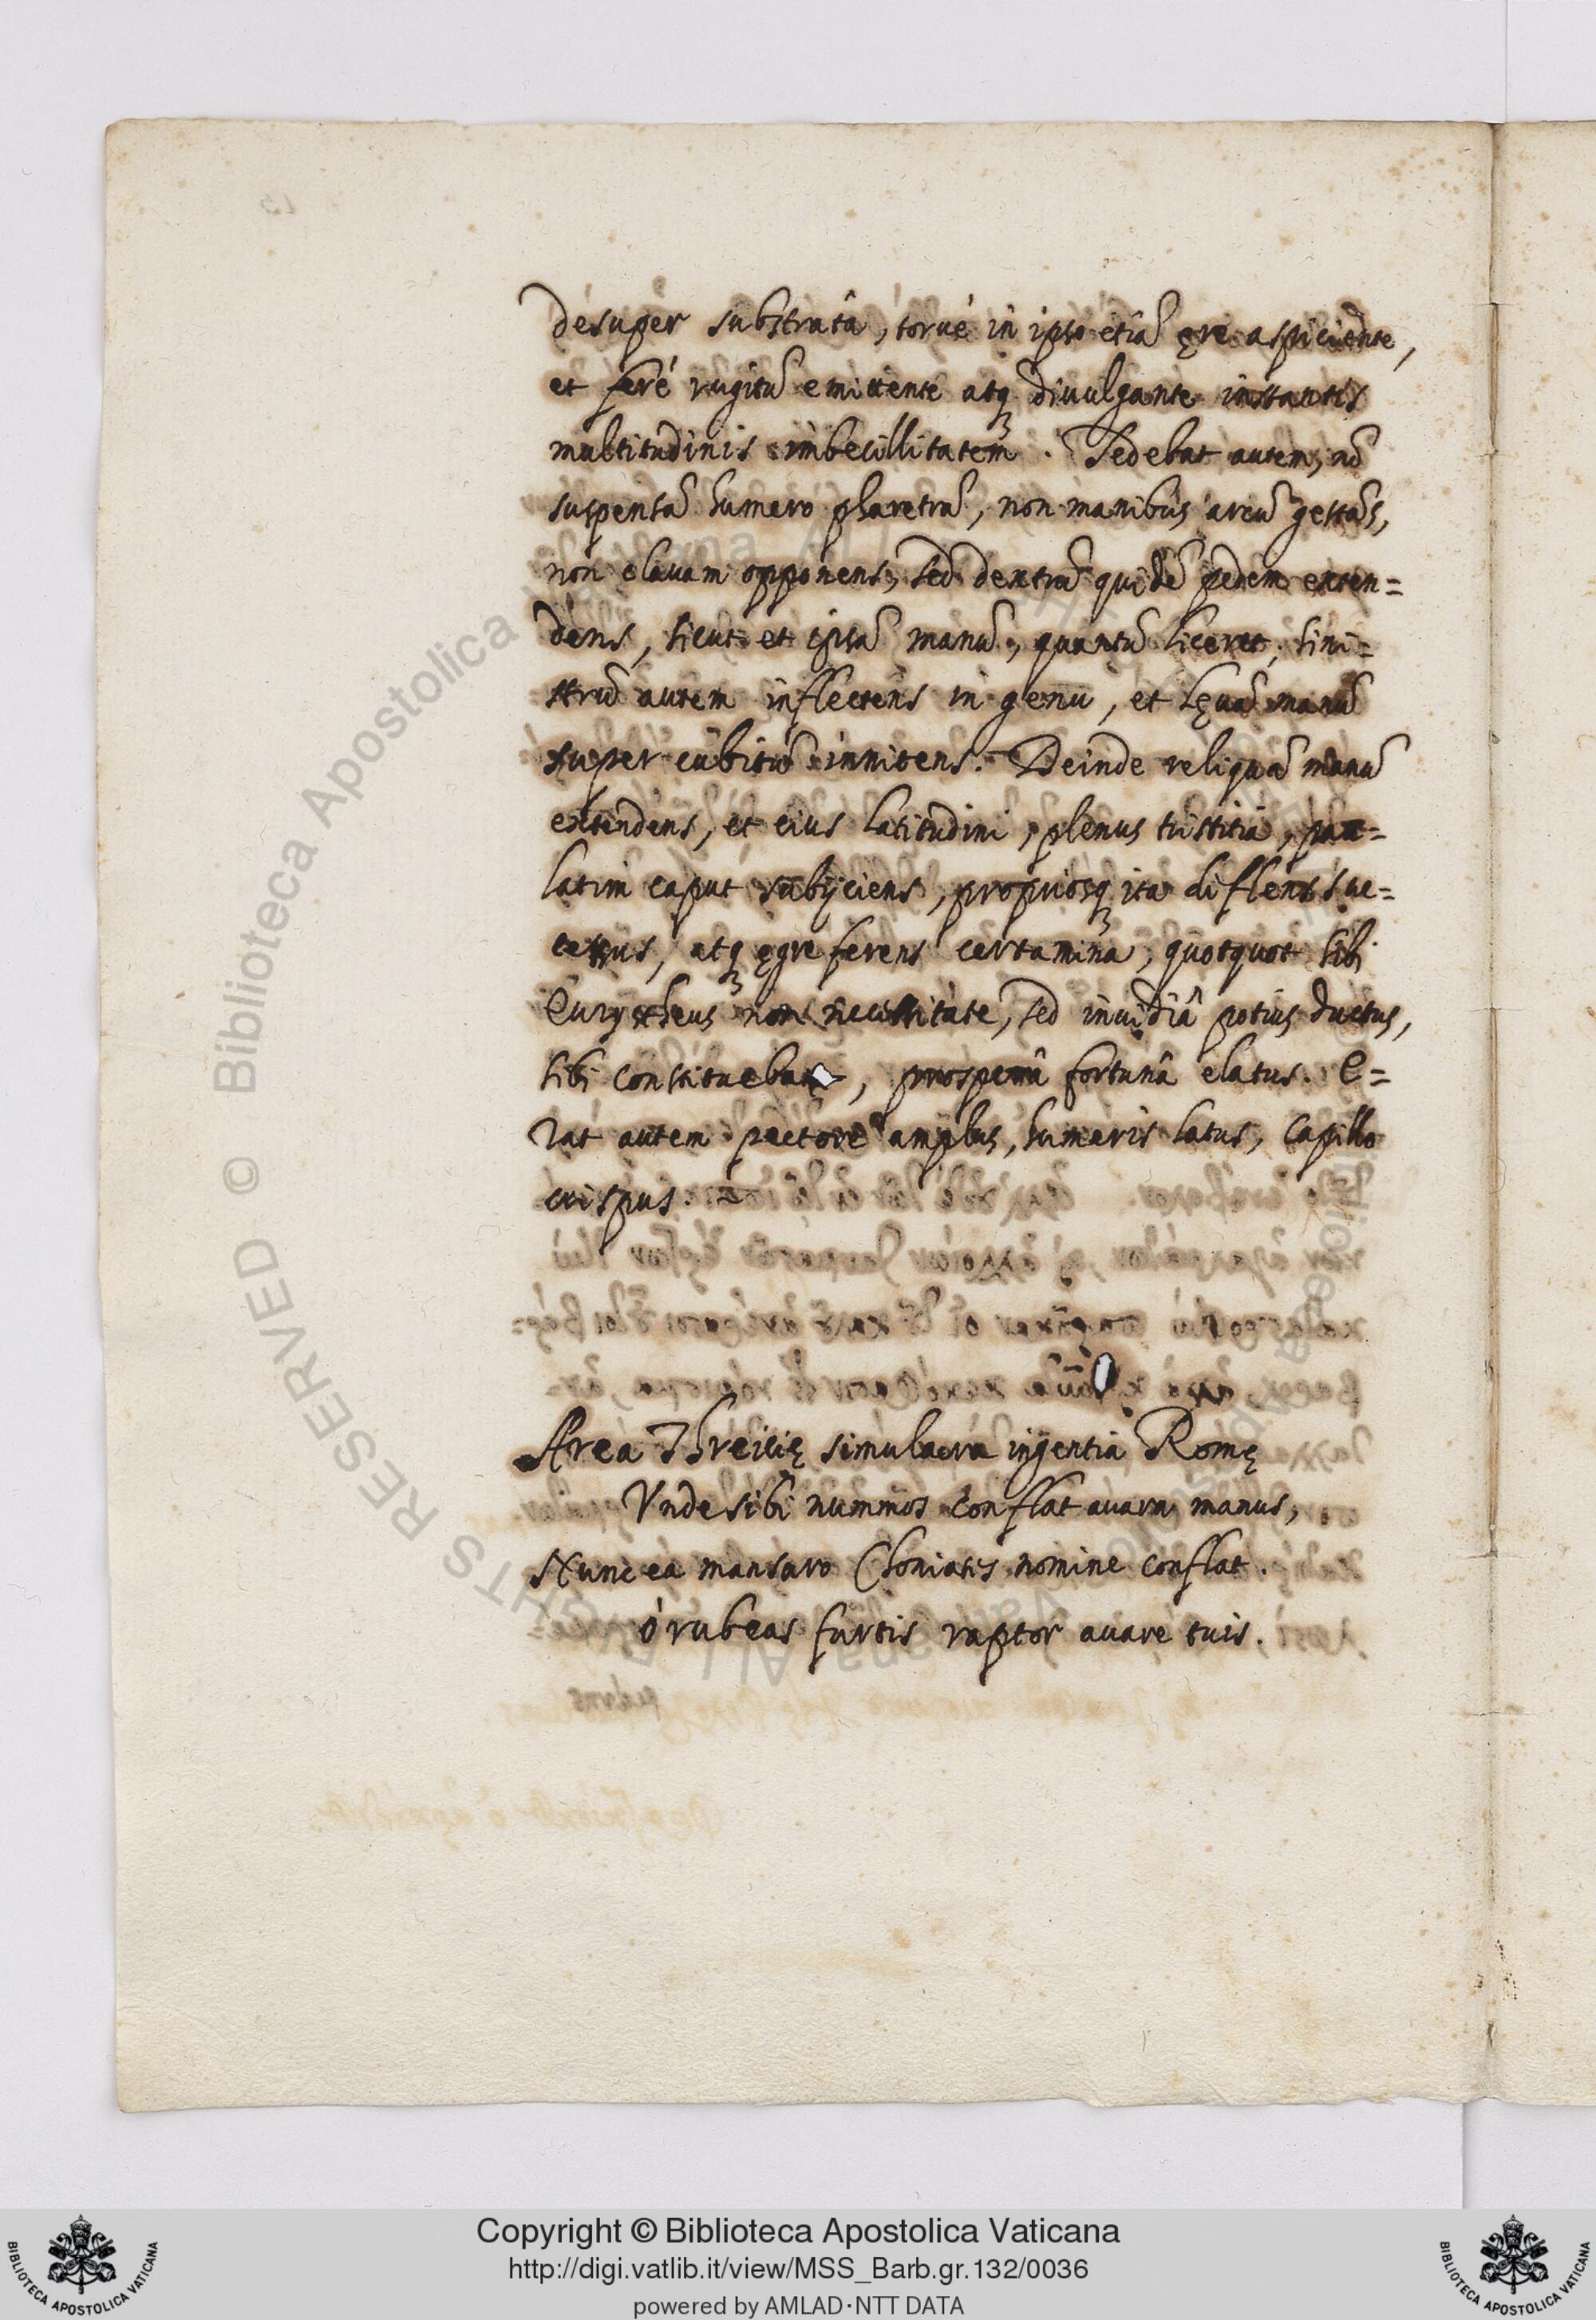 desuper substratâ, torué in ipso etiã ęre aspiciente,
et feré rugitũ emittente atq; divulgante instantis
multitudinis imbecillitatem. Sedebat autem, nõ
suspensã humero pharetrã, non manibus arcũ gestãs,
non clavam opponens, sed dextrũ quidẽ pedem exten=
dens, sicut et ipsã manũ, quantũ liceret, sini=
strũ autem inflectens in genu, et lęuã manũ
super cubitũ innitens. Deinde reliquã manũ
extendens, et eius latitudini, plenus tristitiâ, pau=
latim caput subijciens, propriosq; ita diflens suc=
cessus, atq; ęgre ferens certamina, quotquot sibi
Eurystheus non necessitate, sed inuidiâ potius ductus,
sibi constituebat, prosperâ fortunâ elatus. E=
rat autem pectore amplus, humeris latus, capillo
crispus.
Area Threiicię simulacra ingentia Romę
Vnde sibi nummos conflat auara manus,
Nunc ea mansuro Choniatis nomine conflat.
ó rubeas furtis raptor auare tuis.
© Biblioteca Apostolica Vaticana ALL RIGHTS RESERVED
Copyright © Biblioteca Apostolica Vaticana
http://digi.vatlib.it/view/MSS_Barb.gr.132/0036
powered by AMLAD·NTT DATA
BIBLIOTECA APOSTOLICA VATICANA
BIBLIOTECA APOSTOLICA VATICANA